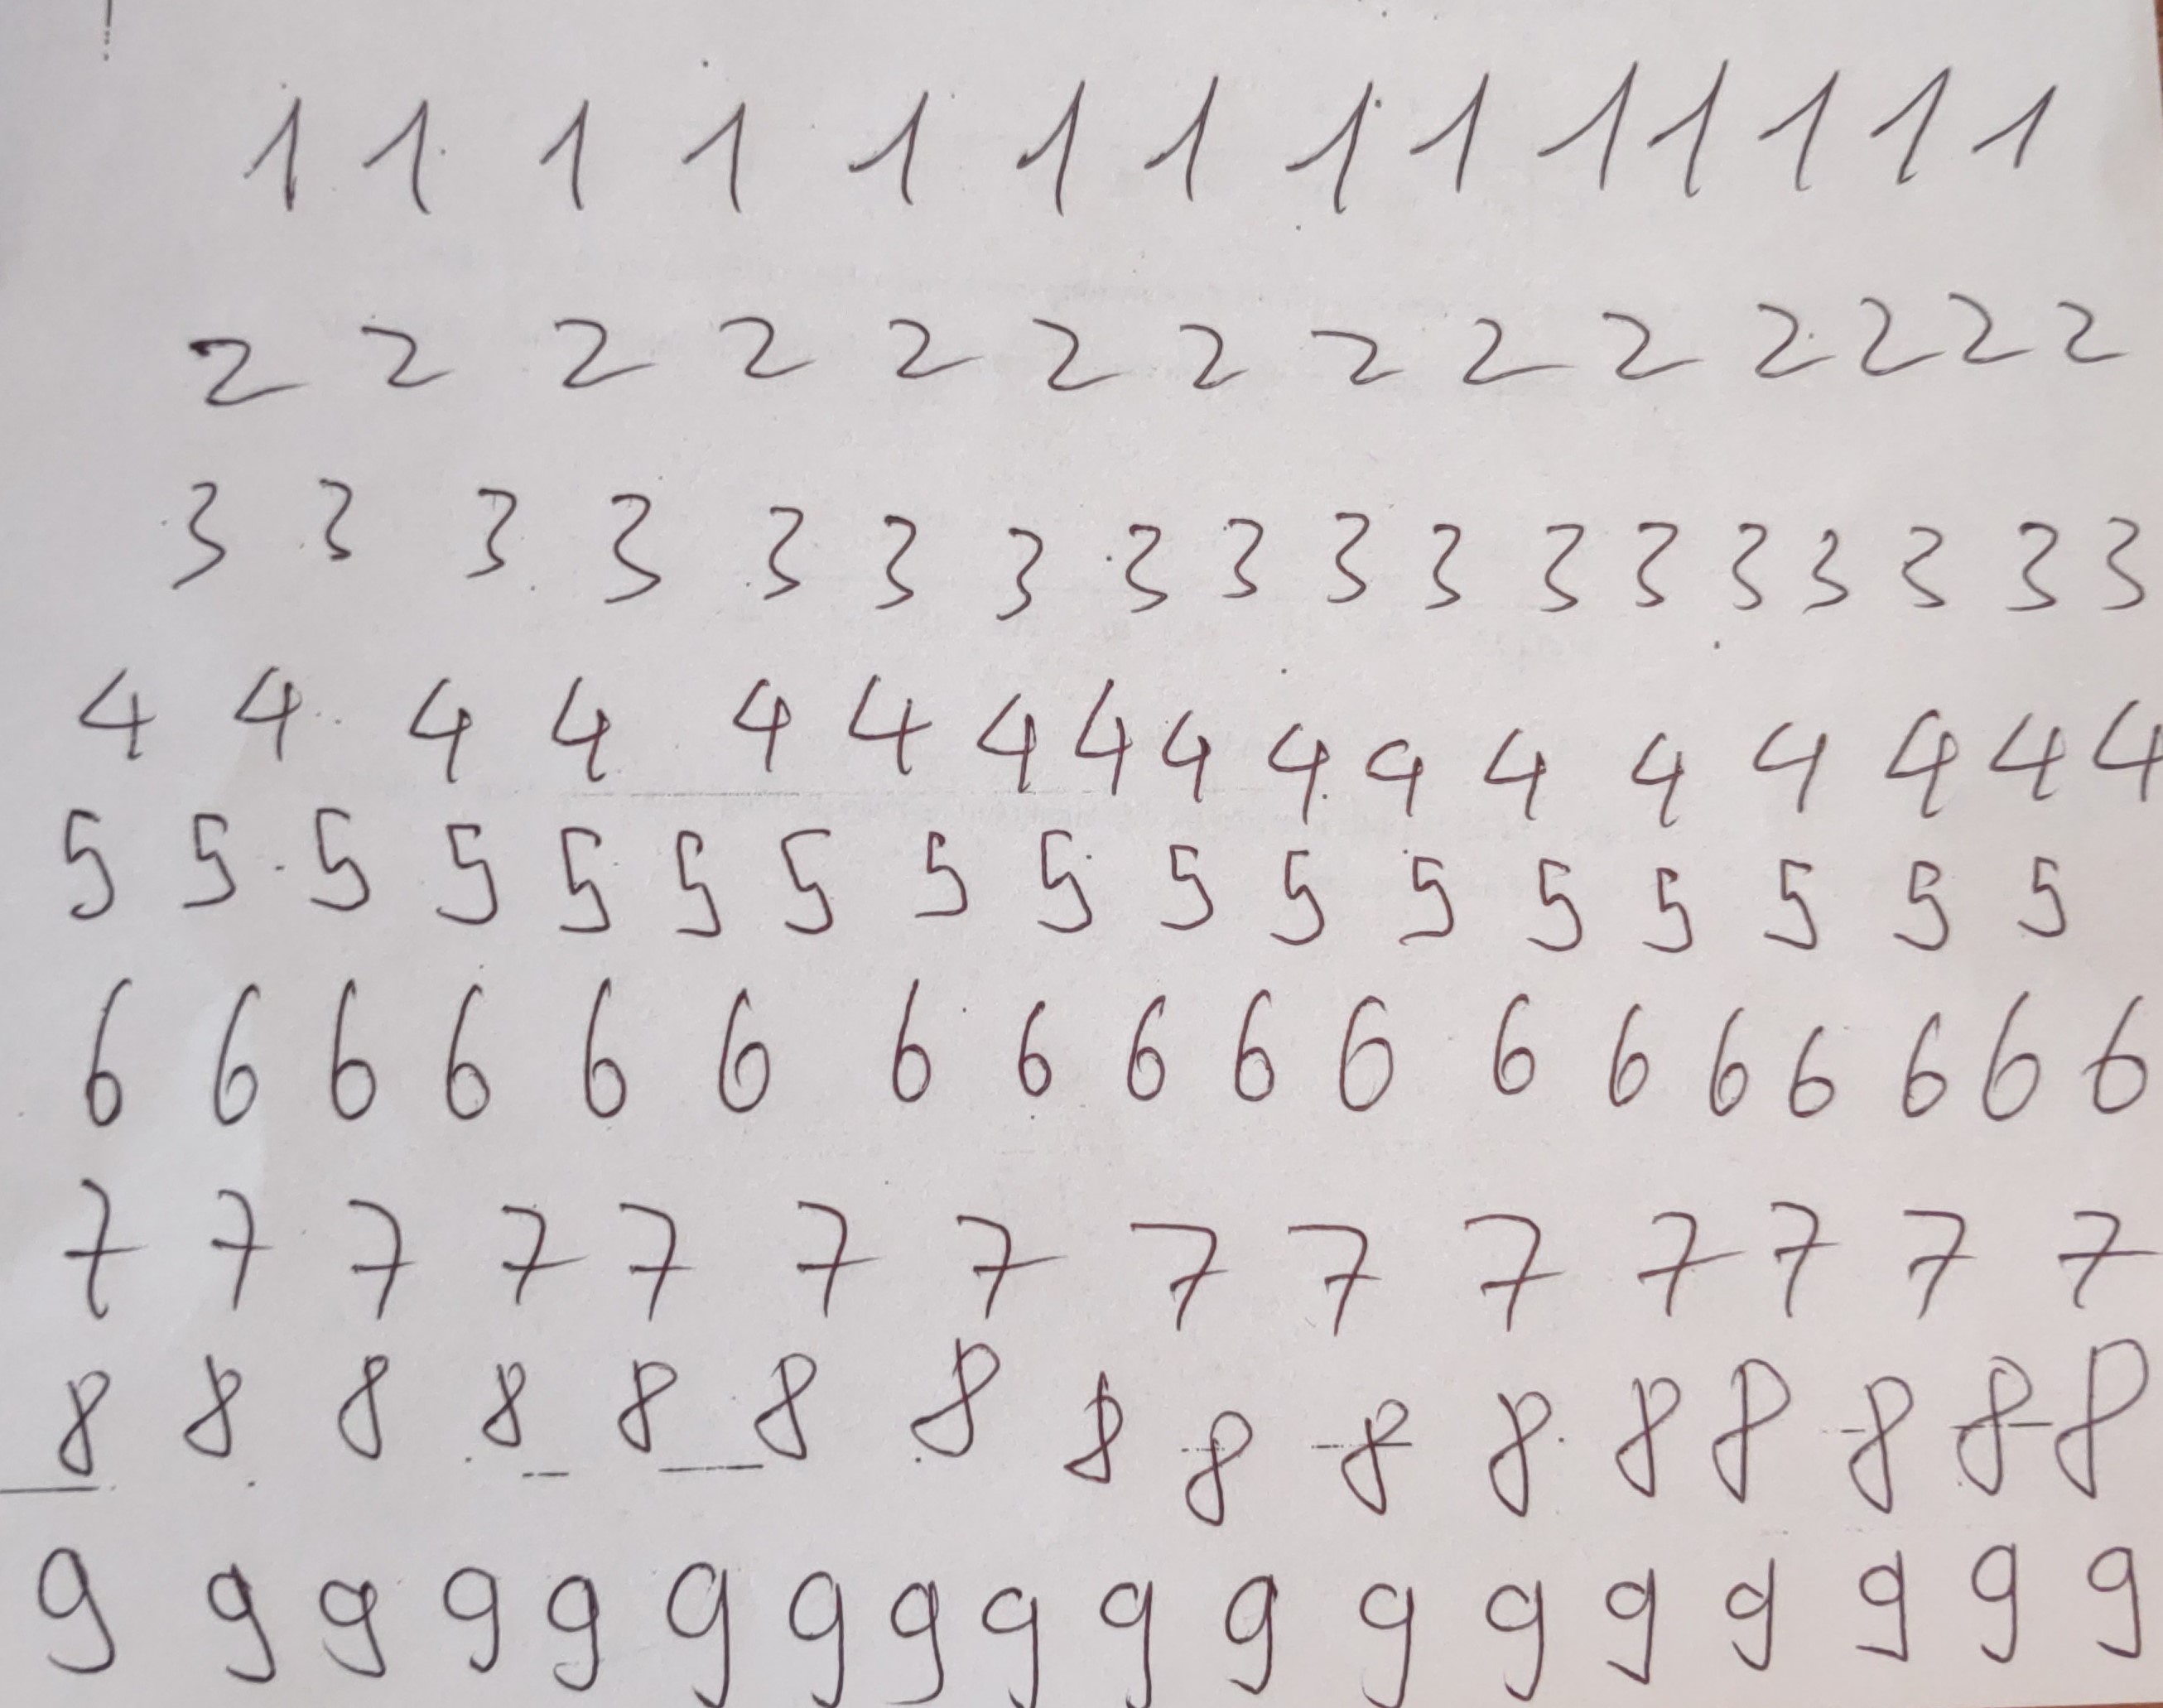 1 1 1 1 1 1 1 1 1 1 1 1 1 1
2 2 2 2 2 2 2 2 2 2 2 2 2 2
3 3 3 3 3 3 3 3 3 3 3 3 3 3 3 3 3 3
4 4 4 4 4 4 4 4 4 4 4 4 4 4 4 4 4
5 5 5 5 5 5 5 5 5 5 5 5 5 5 5 5 5
6 6 6 6 6 6 6 6 6 6 6 6 6 6 6 6 6 6
7 7 7 7 7 7 7 7 7 7 7 7 7 7
8 8 8 8 8 8 8 8 8 8 8 8 8 8 8 8
9 9 9 9 9 9 9 9 9 9 9 9 9 9 9 9 9 9